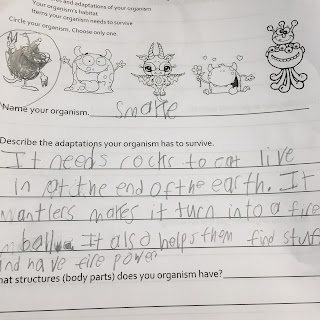 es and adaptations of your organism
Your organism's habitat
Items your organism needs to survive
Circle your organism. Choose only one.
Name your organism.
Describe the adaptations your organism has to survive.
It needs rocks to eat live
in at the end of the earth. It
antlers makes it turn into a fire
ball. It also helps them find stuff
and have fire power
hat structures (body parts) does you organism have?